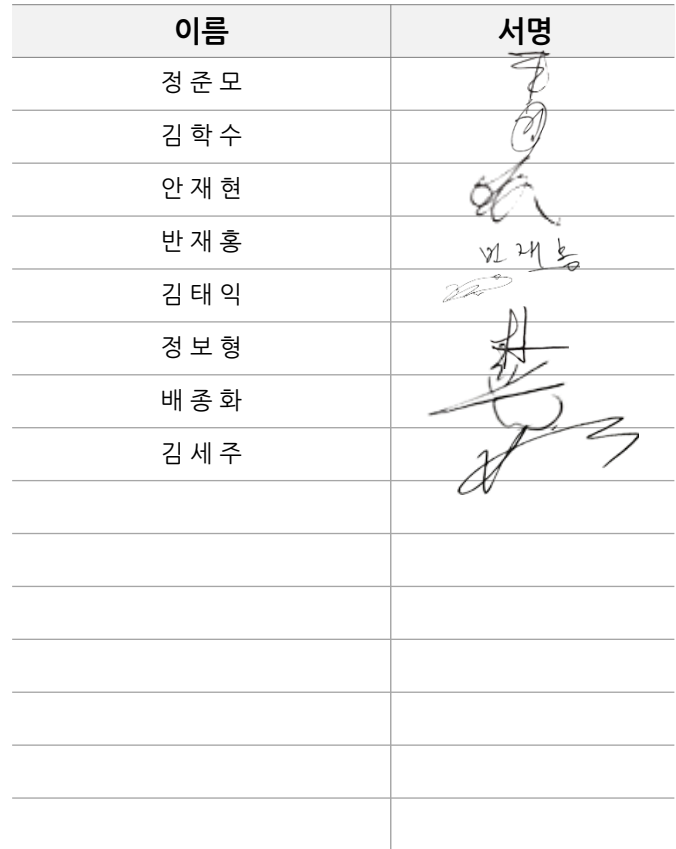 이름 서명
정 준 모
김 학 수
안 재 현
반 재 홍 반 재 홍
김 태 익
정 보 형
배 종 화
김 세 주